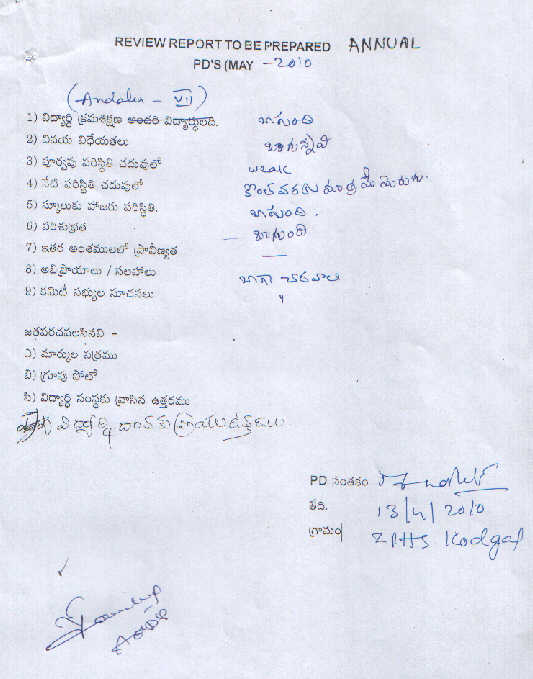 REVIEW REPORT TO BE PREPARED ANNUAL
PD'S (MAY -2010
(Andalu - VII)
1) విద్యార్థి క్రమశిక్షణ అందరి విద్యార్థులది. బాగుంది
2) వినయ విధేయతలు బాగున్నవి
3) పూర్వపు పరిస్థితి చదువులో weak
4) నేటి పరిస్థితి చదువులో కొంత వరకు మాత్రమే మెరుగు.
5) స్కూలుకు హాజరు పరిస్థితి. బాగుంది.
6) పరిశుభ్రత — బాగుంది
7) ఇతర అంశములలో ప్రావీణ్యత —
8) అభిప్రాయాలు / సలహాలు బాగా చదవాలి
9) కమిటీ సభ్యుల సూచనలు "
జతపరచవలసినవి –
ఎ) మార్కుల పత్రము
బి) గ్రూపు ఫోటో
సి) విద్యార్థి సంస్థకు వ్రాసిన ఉత్తరము
విద్యార్థి
PD సంతకం
తేది. 13/4/2010
గ్రామం ZPHS Kodgal